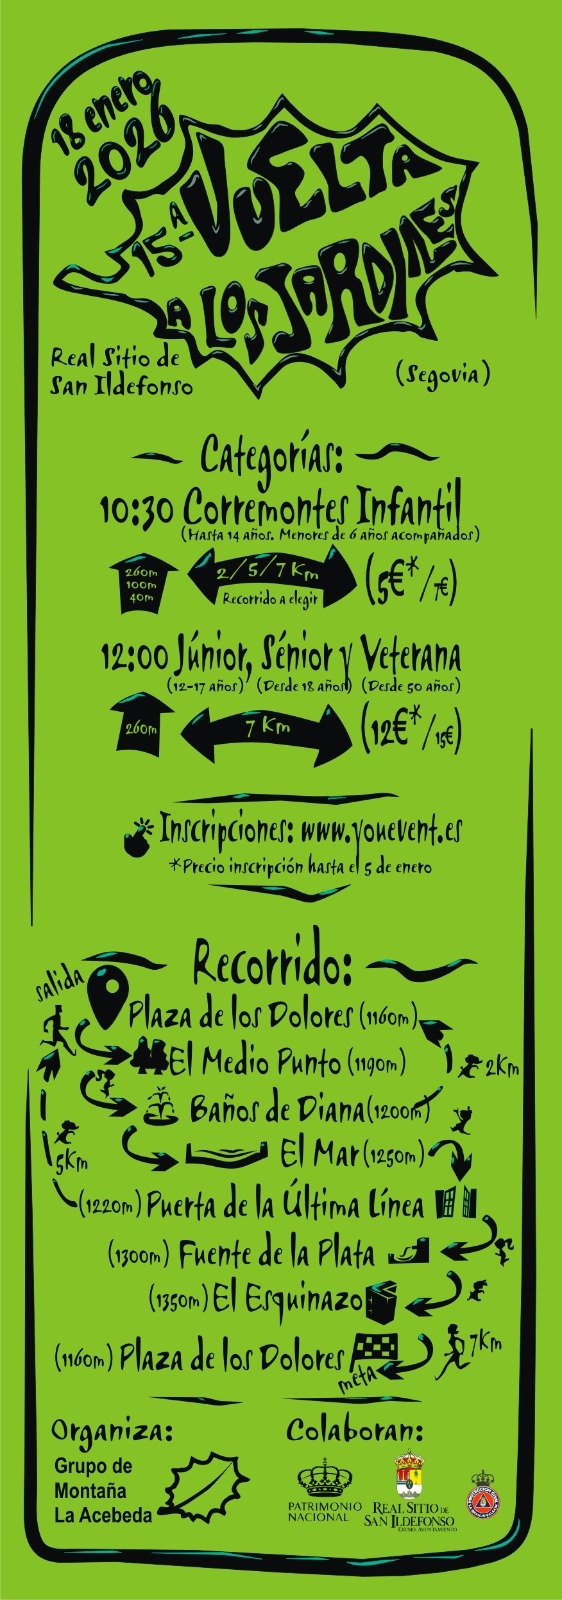 18 enero
2026
15ª VUELTA
A LOS JARDINES
Real Sitio de
San Ildefonso
(Segovia)
Categorías:
10:30 Corremontes Infantil
(Hasta 14 años. Menores de 6 años acompañados)
260m
100m
40m
2/5/7 Km
Recorrido a elegir
(5€*/7€)
12:00 Júnior, Sénior y Veterana
(12-17 años) (Desde 18 años) (Desde 50 años)
260m
7 Km
(12€*/15€)
Inscripciones: www.youevent.es
*Precio inscripción hasta el 5 de enero
Recorrido:
salida
Plaza de los Dolores (1160m)
El Medio Punto (1190m)
2Km
Baños de Diana (1200m)
El Mar (1250m)
5Km
(1220m) Puerta de la Última Línea
(1300m) Fuente de la Plata
(1350m) El Esquinazo
(1160m) Plaza de los Dolores
7Km
meta
Organiza:
Grupo de
Montaña
La Acebeda
Colaboran:
PATRIMONIO
NACIONAL
REAL SITIO DE
SAN ILDEFONSO
EXCMO. AYUNTAMIENTO